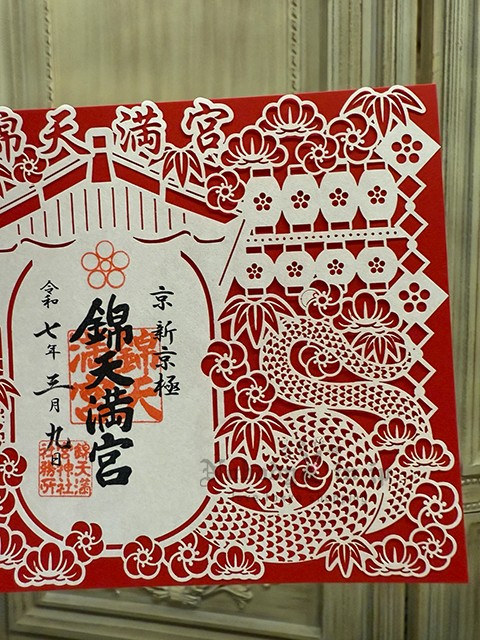 錦天満宮
京 新京極
錦天満宮
令和七年三月九日
錦天満宮
錦天満
宮神社
社務所